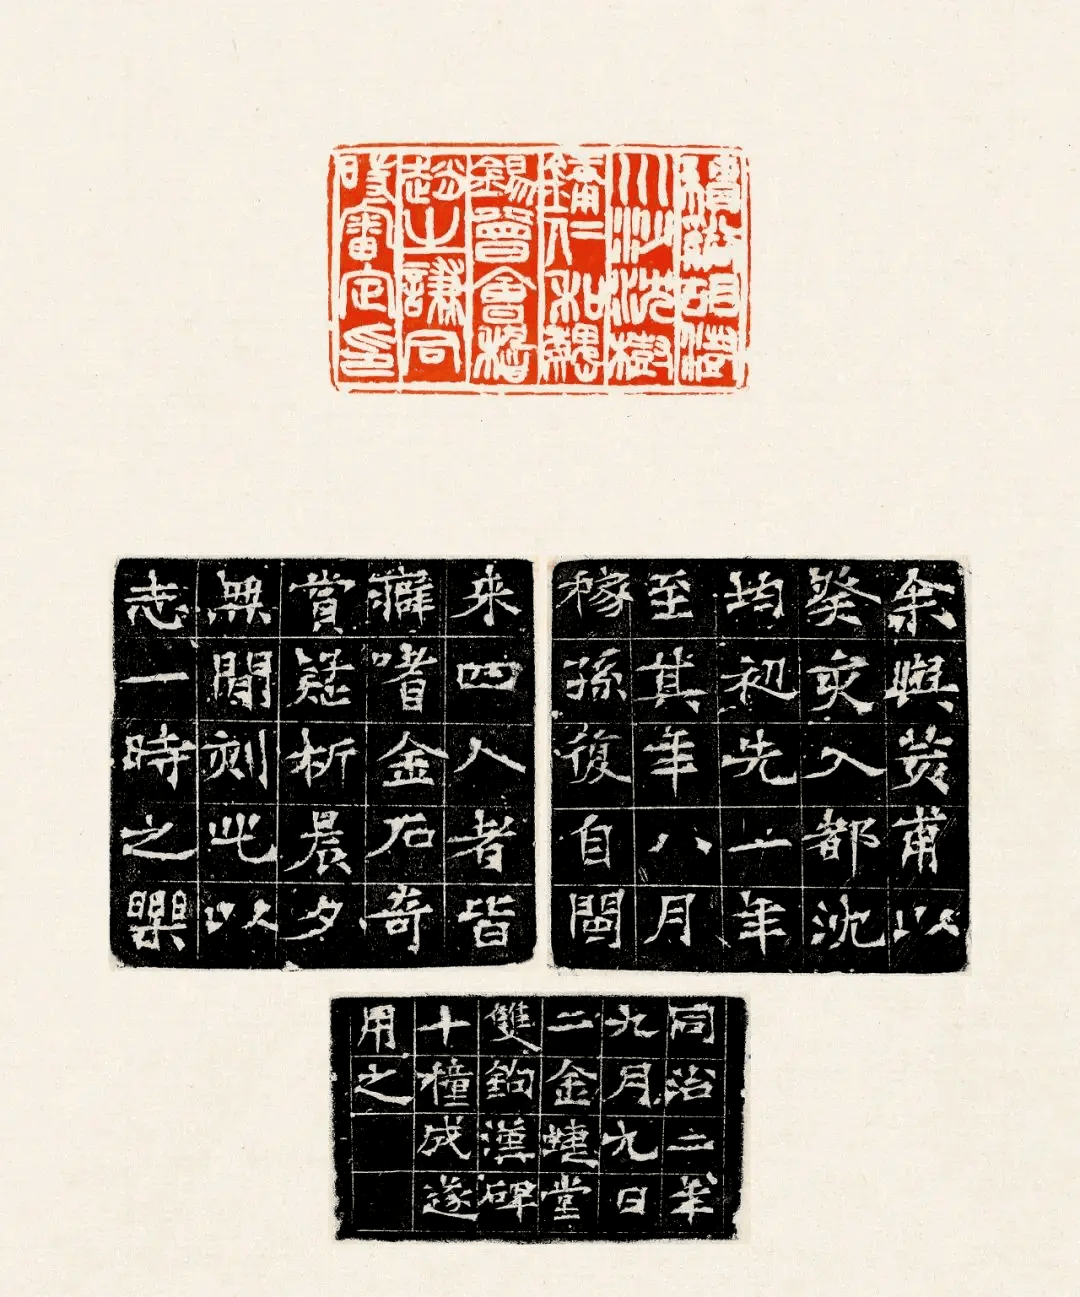 績谿胡澍
川沙沈樹
鏞仁和魏
錫曾會稽
趙之謙同
時審定印
余與荄甫以
癸亥入都沈
均初先一年
至其年八月
稼孫復自閩
来四人者皆
癖嗜金石奇
賞疑析晨夕
無閒刻此以
志一時之樂
同治二年
九月九日
二金蜨堂
雙鉤漢碑
十穜成遂
用之